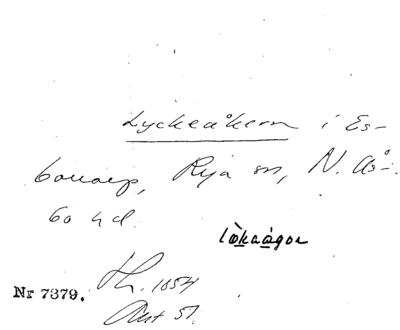 Lyckeåkern i Es-
borarp, Rija sn, N. Ås-
bo hd.
lø̀kaågọr
Nr 7379.
Th. 1854
Akt 51.